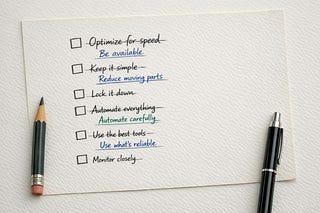 Optimize for speed
Be available
Keep it simple
Reduce moving parts
Lock it down
Automate everything
Automate carefully
Use the best tools
Use what's reliable
Monitor closely